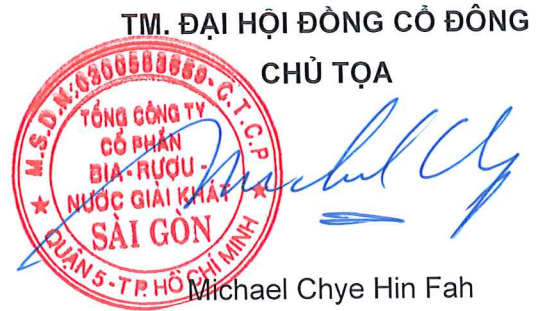 TM. ĐẠI HỘI ĐỒNG CỔ ĐÔNG
CHỦ TỌA
M.S.D.N:0300583659-C.T.C.P
TỔNG CÔNG TY
CỔ PHẦN
BIA - RƯỢU -
NƯỚC GIẢI KHÁT
SÀI GÒN
QUẬN 5 - T.P. HỒ CHÍ MINH
Michael Chye Hin Fah